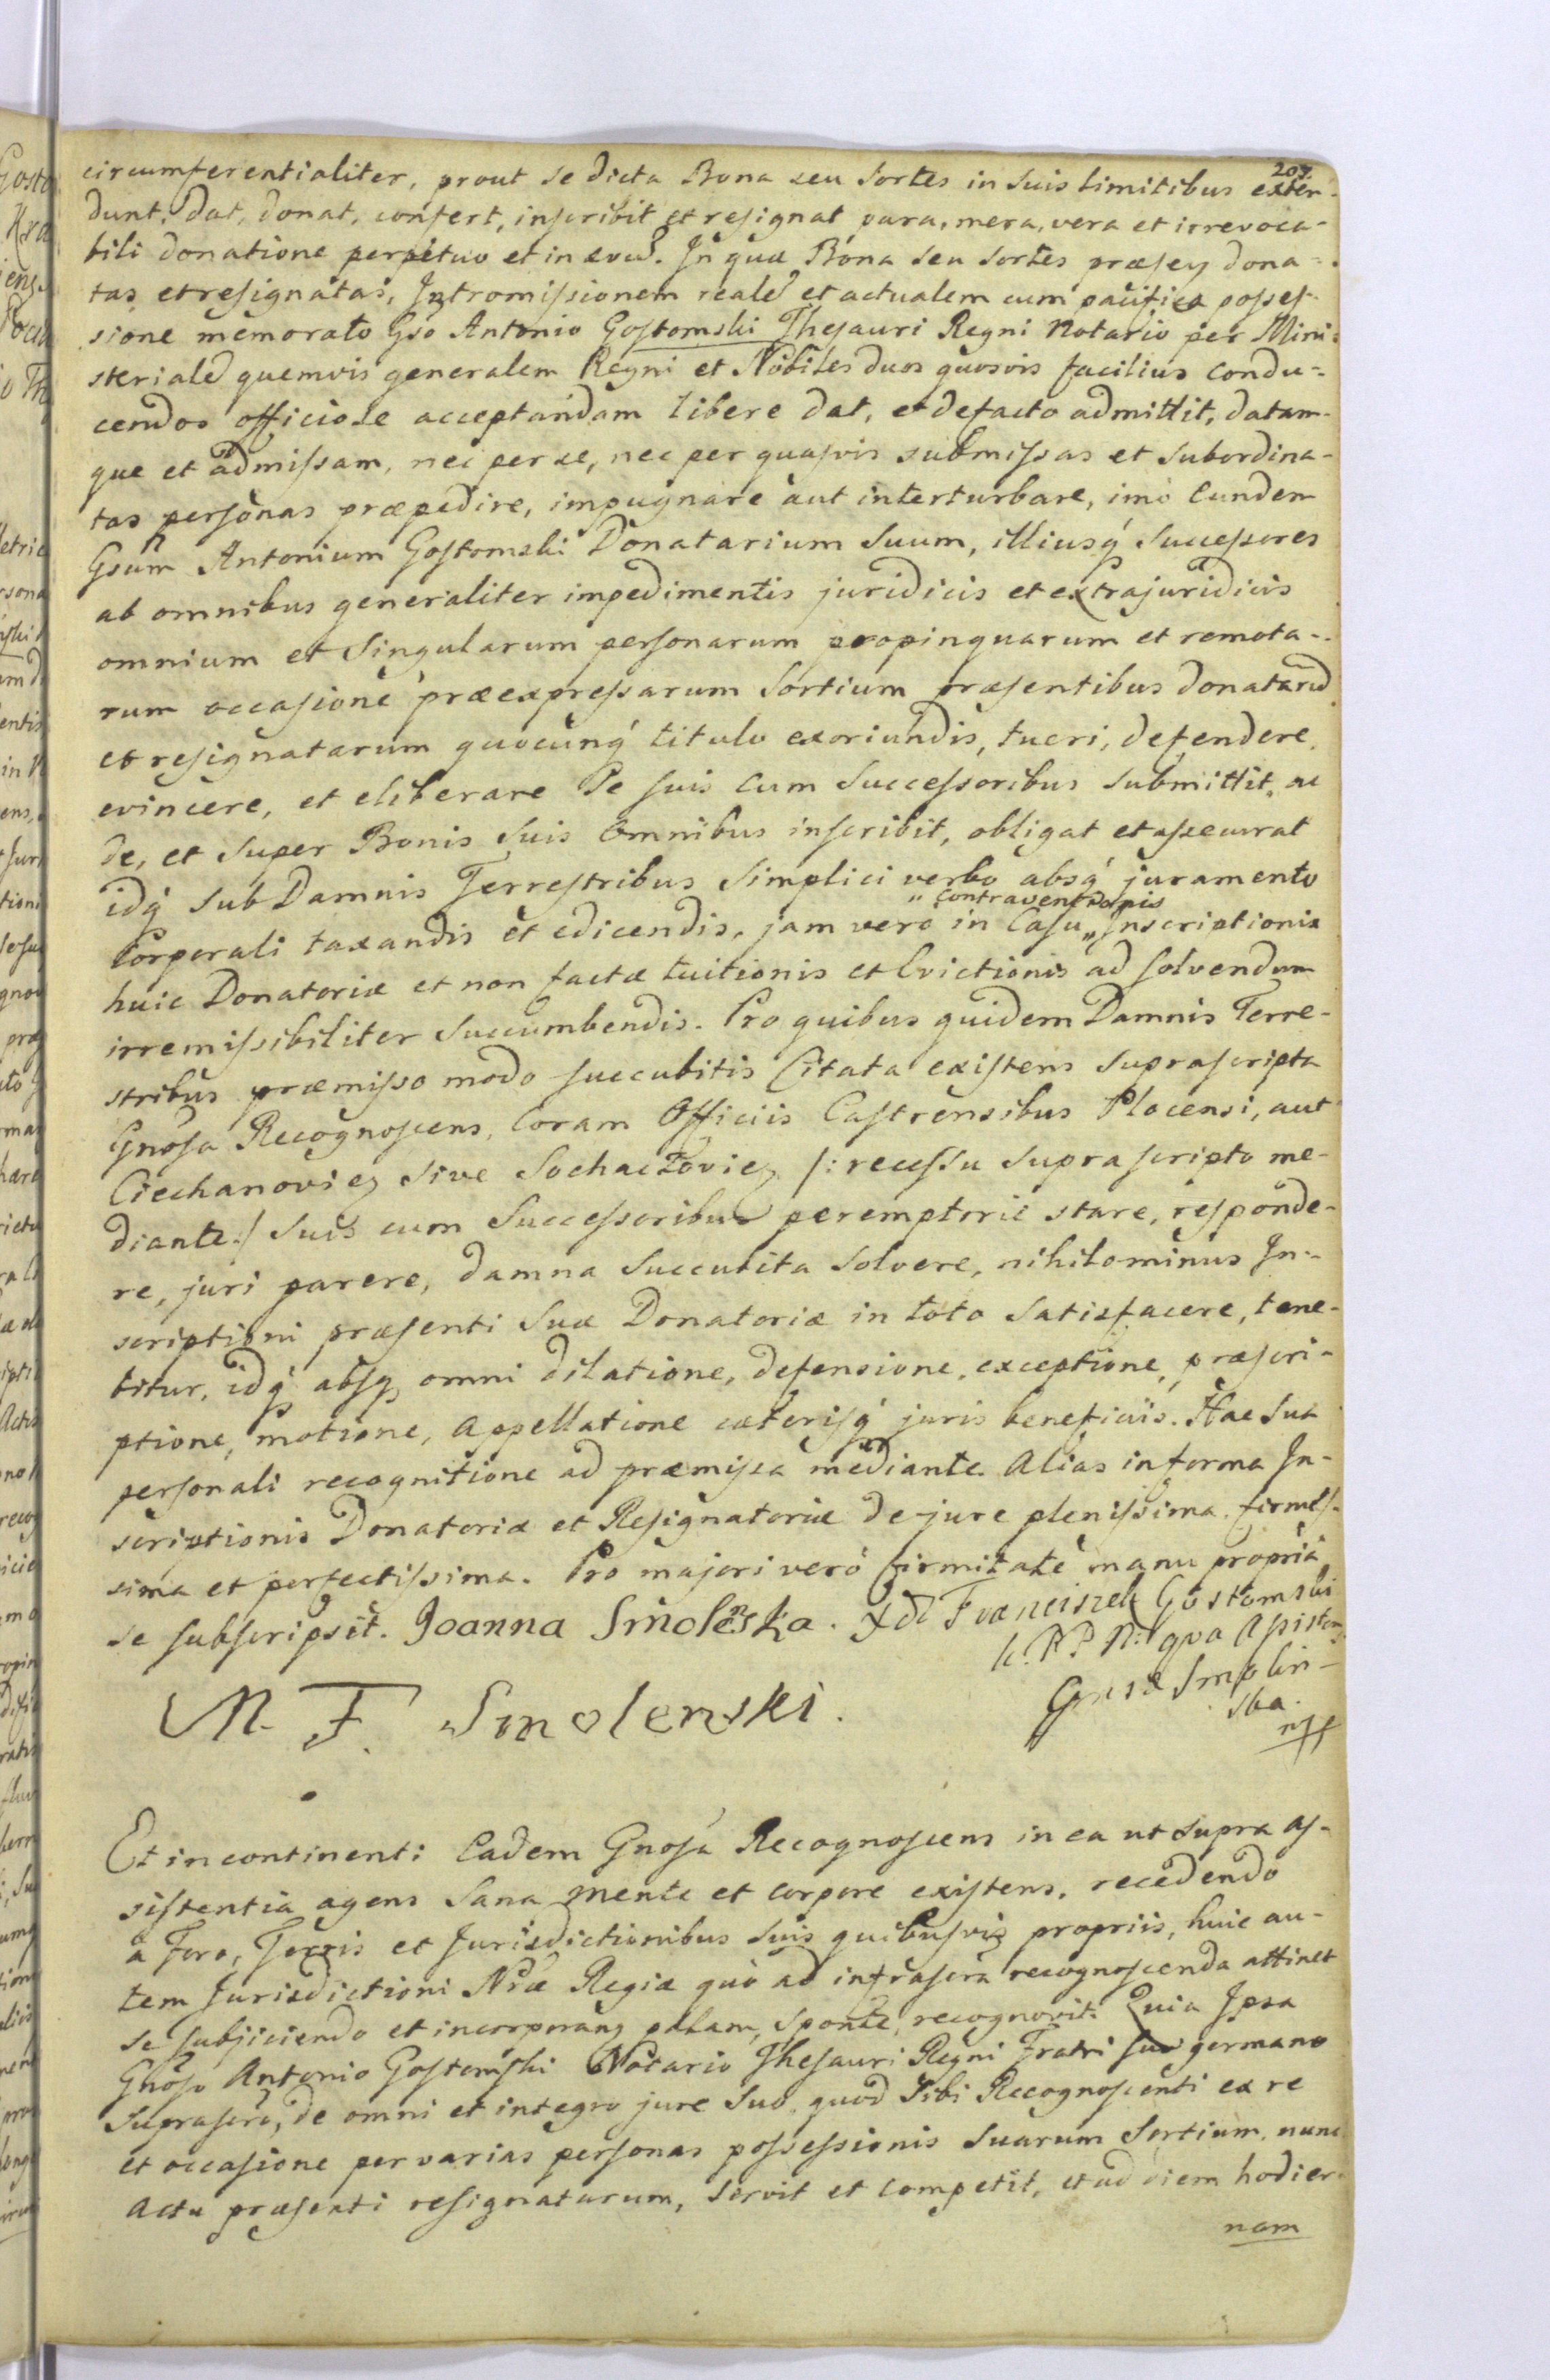 207.
circumferentialiter, prout se dicta Bona seu Sortes in suis limitibus exten-
dunt, dat, donat, confert, inscribit et resignat pura, mera, vera et irrevoca-
bili donatione perpetuo et in ævũ. In quæ Bona seu Sortes præsen dona-
tas et resignatas, Intromissionem realẽ et actualem cum pacifica posses-
sione memorato Gso Antonio Gostomski Thesauri Regni Notario per Mini-
sterialẽ quemvis generalem Regni et Nobiles duos quosvis facilius condu-
cendos officiose acceptandam libere dat, et defacto admittit, datam-
que et admissam, nec per se, nec per quasvis submissas et subordina-
tas personas præpedire, impugnare aut interturbare, imò Eundem
Gsum Antonium Gostomski Donatarium Suum, illiusq́ Successores
ab omnibus generaliter impedimentis juridicis et extrajuridicis
omnium et Singularum personarum propinquarum et remota-
rum occasione præexpressarum Sortium præsentibus donatarũ
et resignatarum quocunq́ titulo exoriundis, tueri, defendere,
evincere, et eliberare Se suis cum Successoribus submittit, ac
de, et super Bonis Suis omnibus inscribit, obligat et assecurat
idq́ sub Damnis Terrestribus Simplici verbo absq́ juramento
" Contraventionis
Corporali taxandis et edicendis, jam vero in Casu " Inscriptionis
huic Donatoriæ et non factæ tuitionis et Evictionis ad solvendum
irremissibiliter succumbendis. Pro quibus quidem Damnis Terre-
stribus præmisso modo succubitis Citata existens suprascripta
Gnosa Recognoscens, Coram Officiis Castrensibus Plocensi, aut
Ciechanovien sive Sochaczovien /: recessu suprascripto me-
diante :/ Suis cum Successoribus peremptorie stare, responde-
re, juri parere, damna succubita solvere, nihilominus In-
scriptioni præsenti Suæ Donatoriæ in toto satisfacere, tene-
bitur, idq́ absq́ omni dilatione, defensione, exceptione, præscri-
ptione, motione, Appellatione cæterisq́ juris beneficiis. Hac Sua
personali recognitione ad præmissa mediante. Alias in forma In-
scriptionis Donatoriæ et Resignatoriæ de jure plenissima, firmis-
sima et perfectissima. Pro majori verò firmitate manu propriâ
se subscripsit. Joanna Smoleńska. Franciszek Gostomski
qua Asistens
Gnsæ Smolin-
ska.
M. F. Smolenski.
Et incontinenti Eadem Gnosa Recognoscens in ea ut supra as-
sistentia agens Sana mente et corpore existens, recedendo
à Foro, Terris et Jurisdictionibus Suis quibusvis propriis, huic au-
tem Jurisdictioni Nræ Regiæ quò ad infrascra recognoscenda attinet
se subjiciendo et incorporang palam, sponte, recognovit: Quia Ipsa
Gnoso Antonio Gostomski Notario Thesauri Regni Fratri suo germano
suprascro, de omni et integro jure Suo, quod Sibi Recognoscenti ex re
et occasione per varias personas possessionis Suarum Sortium, nunc
Actu præsenti resignatarum, servit et competit, et ad diem hodier-
nam